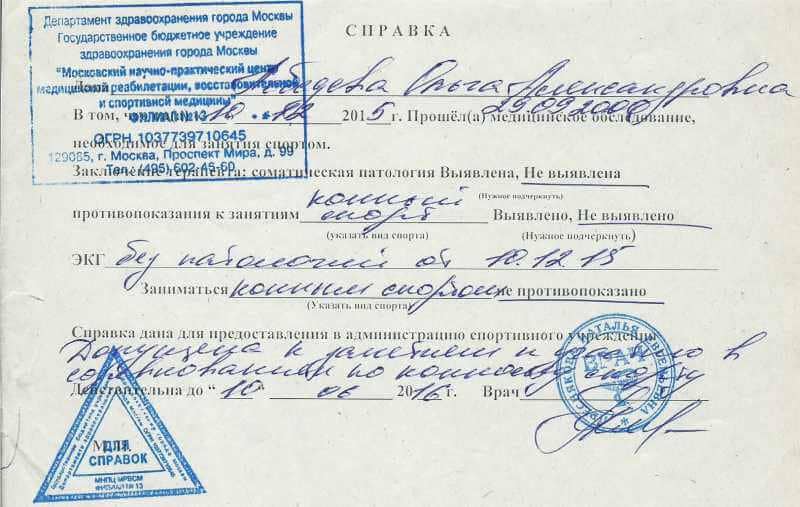 Департамент здравоохранения города Москвы
Государственное бюджетное учреждение
здравоохранения города Москвы
"Московский научно-практический центр
медицинской реабилитации, восстановительной
и спортивной медицины"
ФИЛИАЛ № 13
ОГРН 1037739710645
129085, г. Москва, Проспект Мира, д. 99
Тел.: (495) 602-45-50
СПРАВКА
Ольга Александровна
29.09.2000
В том, что 10 12 2015г. Прошёл(а) медицинское обследование,
необходимое для занятия спортом.
Заключение терапевта: соматическая патология Выявлена, Не выявлена
(Нужное подчеркнуть)
противопоказания к занятиям конный спорт Выявлено, Не выявлено
(указать вид спорта) (Нужное подчеркнуть)
ЭКГ без патологий от 10.12.15
Заниматься конным спортом не противопоказано
(Указать вид спорта)
Справка дана для предоставления в администрацию спортивного учреждения
Допущена к занятиям и участию в
соревнованиях по конному спорту
Действительна до "10" 06 2016г. Врач
НАТАЛЬЯ
ВРАЧ
М.П.
ДЛЯ
СПРАВОК
МНПЦ МРВСМ
ФИЛИАЛ № 13